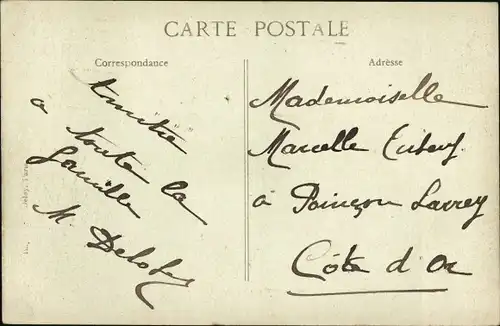 CARTE POSTALE
Correspondance
Amitié
a toute la
famille
M.
Adrèsse
Mademoiselle
Marcelle
à Poinçon Larrey
Côte d'Or